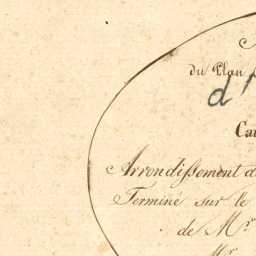 du Plan
d'
Arrondissement d
Terminé sur le
de Mr
Mr